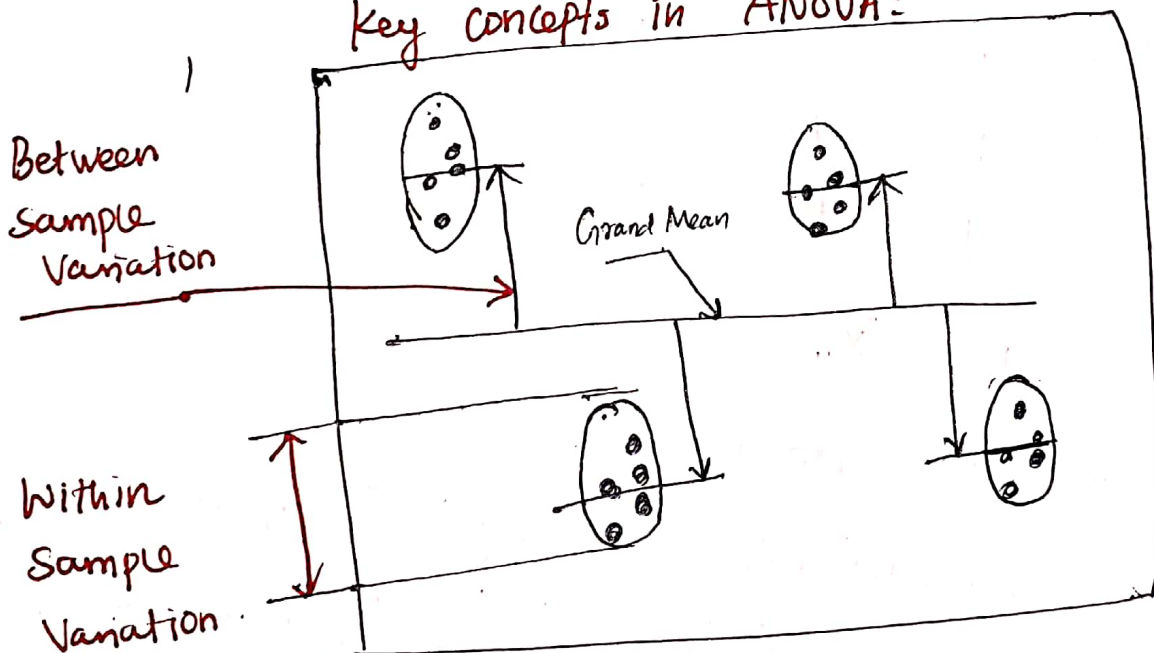 Key Concepts in ANOVA:
Between
Sample
Variation
Grand Mean
Within
Sample
Variation.